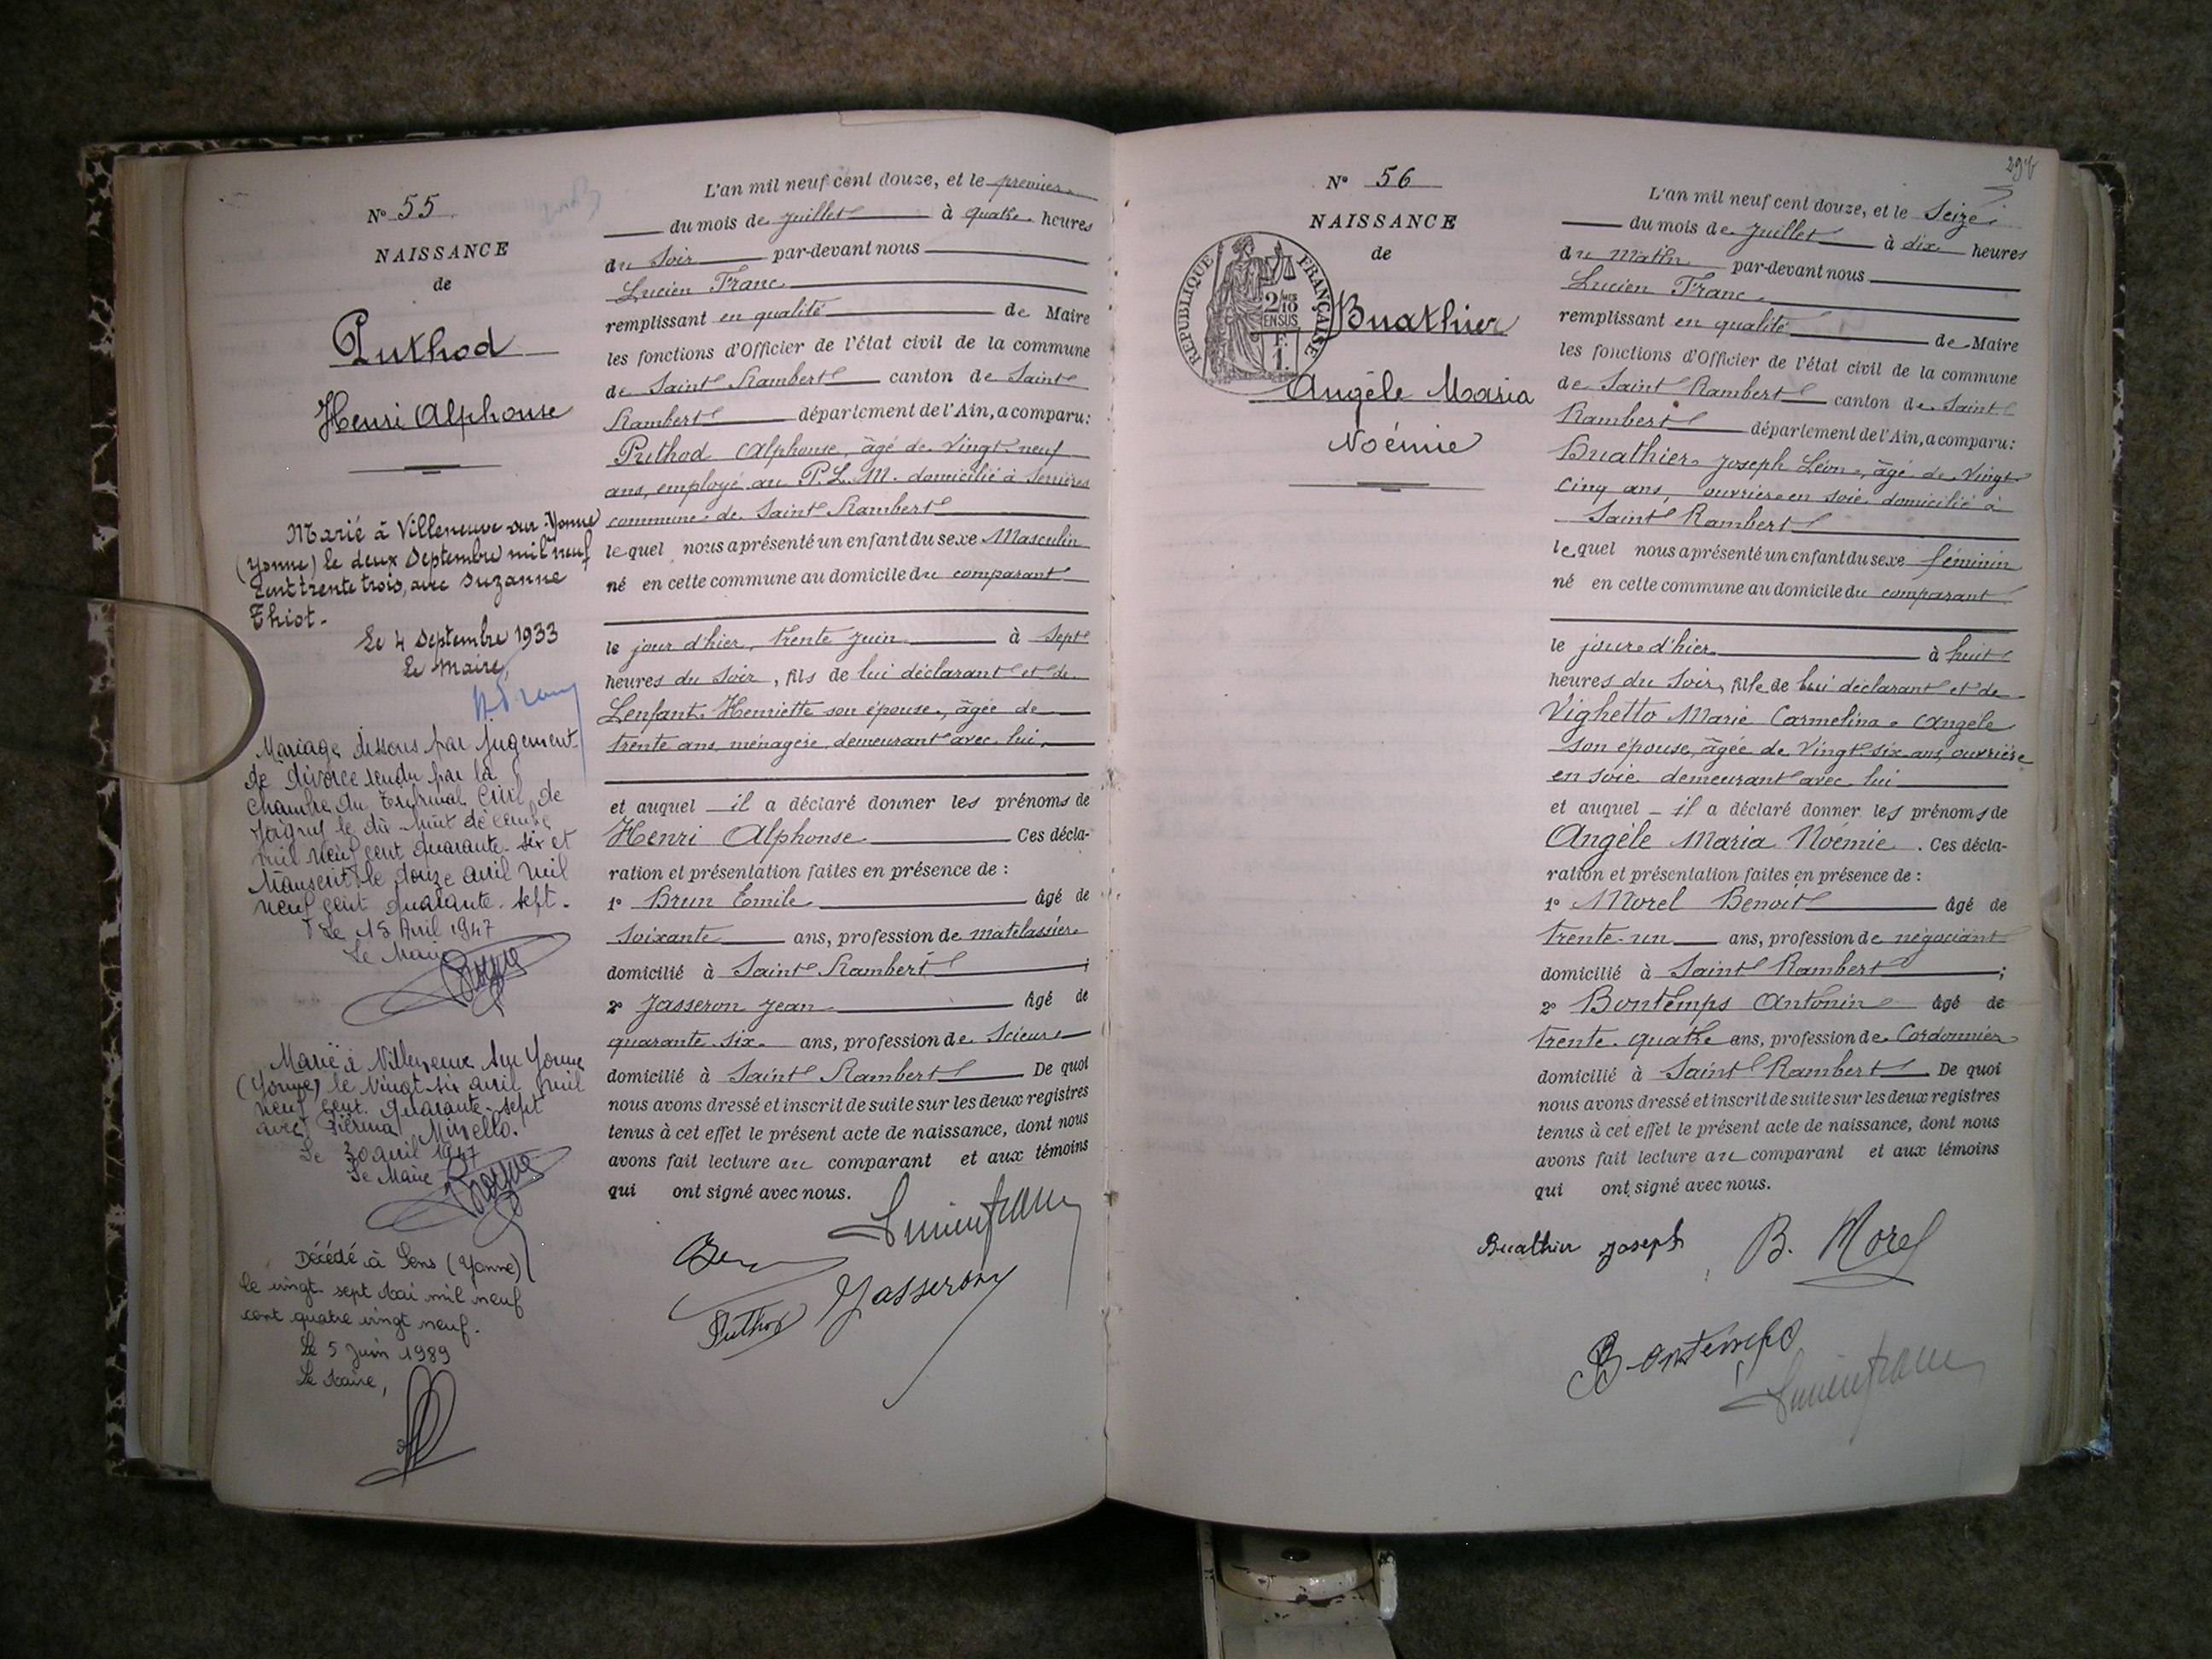 N° 55
NAISSANCE
de
Puthod
Henri Alphonse
Marié à Villeneuve sur Yonne
(Yonne) le deux Septembre mil neuf
cent trente trois, avec Suzanne
Thiot.
Le 4 Septembre 1933
Le Maire,
Mariage dissous par jugement
de divorce rendu par la
Chambre du Tribunal Civil de
Joigny le dix huit décembre
mil neuf cent quarante-six et
transcrit le douze avril mil
neuf cent quarante-sept.
Le 15 Avril 1947
Le Maire
Marié à Villeneuve sur Yonne
(Yonne) le vingt six avril mil
neuf cent quarante-sept
avec Pierina
Le 30 avril 1947
Le Maire
Décédé à Sens (Yonne)
le vingt sept Mai mil neuf
cent quatre vingt neuf.
Le 5 Juin 1989
Le Maire,
L'an mil neuf cent douze, et le premier
du mois de Juillet à quatre heures
du Soir par-devant nous
Lucien Franc
remplissant en qualité de Maire
les fonctions d'Officier de l'état civil de la commune
de Saint Rambert canton de Saint
Rambert département de l'Ain, a comparu:
Puthod Alphonse, âgé de Vingt neuf
ans, employé au P.L.M. domicilié à Serrières
commune de Saint Rambert
lequel nous a présenté un enfant du sexe Masculin
né en cette commune au domicile du comparant
le jour d'hier, trente juin à Sept
heures du Soir, fils de lui déclarant et de
Lenfant Henriette son épouse, âgée de
trente ans, ménagère, demeurant avec lui,
et auquel il a déclaré donner les prénoms de
Henri Alphonse Ces décla-
ration et présentation faites en présence de :
1° Brun Emile âgé de
Soixante ans, profession de matelassier
domicilié à Saint Rambert ;
2° Jasseron Jean âgé de
quarante six ans, profession de Scieur
domicilié à Saint Rambert De quoi
nous avons dressé et inscrit de suite sur les deux registres
tenus à cet effet le présent acte de naissance, dont nous
avons fait lecture au comparant et aux témoins
qui ont signé avec nous.
Lucien Franc
Jasseron
Puthod
297
N° 56
NAISSANCE
de
RÉPUBLIQUE FRANÇAISE
2/10
EN SUS
F.
1.
Buathier
Angèle Maria
Noémie
L'an mil neuf cent douze, et le Seize
du mois de Juillet à dix heures
du Matin par-devant nous
Lucien Franc
remplissant en qualité de Maire
les fonctions d'Officier de l'état civil de la commune
de Saint Rambert canton de Saint
Rambert département de l'Ain, a comparu:
Buathier Joseph Léon, âgé de Vingt
cinq ans, ouvrier en soie domicilié à
Saint Rambert
lequel nous a présenté un enfant du sexe féminin
né en cette commune au domicile du comparant
le jour d'hier à huit
heures du Soir, fille de lui déclarant et de
Vighetto Marie Carmelina Angèle
son épouse, âgée de Vingt six ans, ouvrière
en soie demeurant avec lui
et auquel il a déclaré donner les prénoms de
Angèle Maria Noémie. Ces décla-
ration et présentation faites en présence de :
1° Morel Benoit âgé de
trente-un ans, profession de négociant
domicilié à Saint Rambert ;
2° Bontemps Antonin âgé de
trente quatre ans, profession de Cordonnier
domicilié à Saint Rambert De quoi
nous avons dressé et inscrit de suite sur les deux registres
tenus à cet effet le présent acte de naissance, dont nous
avons fait lecture au comparant et aux témoins
qui ont signé avec nous.
Buathier Joseph B. Morel
Bontemps
Lucien Franc